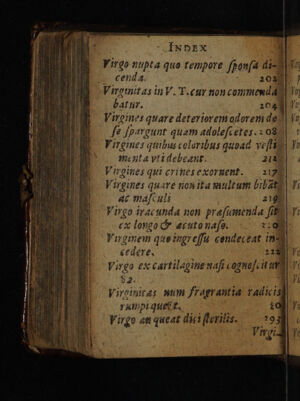 INDEX
Virgo nupta quo tempore sponsa di-
cenda. 202
Virginitas in V. T. cur non commenda
batur. 204
Virgines quare deteriorem odorem de
se spargunt quam adolescẽtes. 208
Virgines quibus coloribus quoad vesti
menta vti debeant. 212
Virgines qui crines exornent. 217
Virgines quare non ita multum bibãt
ac masculi 219
Virgo iracunda non præsumenda sit
ex longo & acuto naso. 220
Virginem quo ingressu condeceat in-
cedere. 222
Virgo ex cartilagine nasi cognoscitur
82.
Virginitas num fragrantia radicis
rumpi queat. 80
Virgo an queat dici sterilis. 295
Virgi-